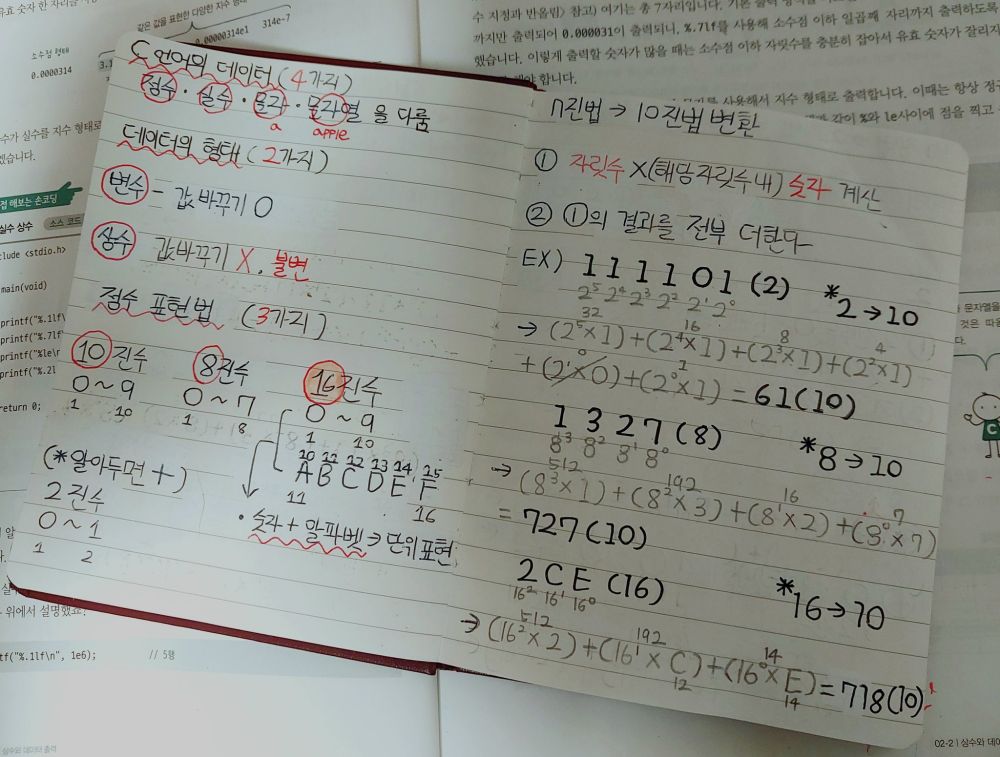 같은 값을 표현한 다양한 지수 형태
소수점 형태
0.0000314
0.0000314e1
314e-7
수 지정과 반올림) 참고) 여기는 총 7자리입니다.
까지만 출력되어 0.000031이 출력되니, %.7lf를 사용해 소수점 이하 일곱째 자리까지 출력하도록
했습니다. 이렇게 출력할 숫자가 많을 때는 소수점 이하 자릿수를 충분히 잡아서 유효 숫자가 잘리지
해야 합니다.
를 사용해서 지수 형태로 출력합니다. 이때는 항상 정수
같이 %와 le사이에 점을 찍고
수가 실수를 지수 형태로
겠습니다.
접 해보는 손코딩
실수 상수 소스 코드
clude <stdio.h>
main(void)
printf("%.1lf\
printf("%.7lf\
printf("%le\n
printf("%.2l
return 0;
C언어의 데이터 (4가지)
정수·실수·문자·문자열 을 다룸
a apple
데이터의 형태 (2가지)
변수 - 값 바꾸기 O
상수 값바꾸기 X, 불변
정수 표현법 (3가지)
10진수 8진수 16진수
0~9 0~7 0~9
1 10 1 8 1 10
10 11 12 13 14 15
A B C D E F
11 16
(*알아두면 +)
2진수
0~1
1 2
· 숫자 + 알파벳 → 단위표현
n진법 → 10진법 변환
① 자릿수 X (해당자릿수 내) 숫자 계산
② ①의 결과를 전부 더한다
EX) 111101 (2) *2→10
2⁵ 2⁴ 2³ 2² 2¹ 2⁰
32 16 8 4
→ (2⁵×1)+(2⁴×1)+(2³×1)+(2²×1)
0 1
+(2¹×0)+(2⁰×1) = 61(10)
1 3 2 7 (8) *8→10
8³ 8² 8¹ 8⁰
512 192 16 7
→ (8³×1)+(8²×3)+(8¹×2)+(8⁰×7)
= 727(10)
2CE (16) *16→10
16² 16¹ 16⁰
512 192 14
→ (16²×2)+(16¹×C)+(16⁰×E)=718(10)
12 14
위에서 설명했죠?
tf("%.1lf\n", 1e6); // 5행
상수와 데이터 출력
문자열을
것은 따옴
다.
C
02-2 | 상수와 데이